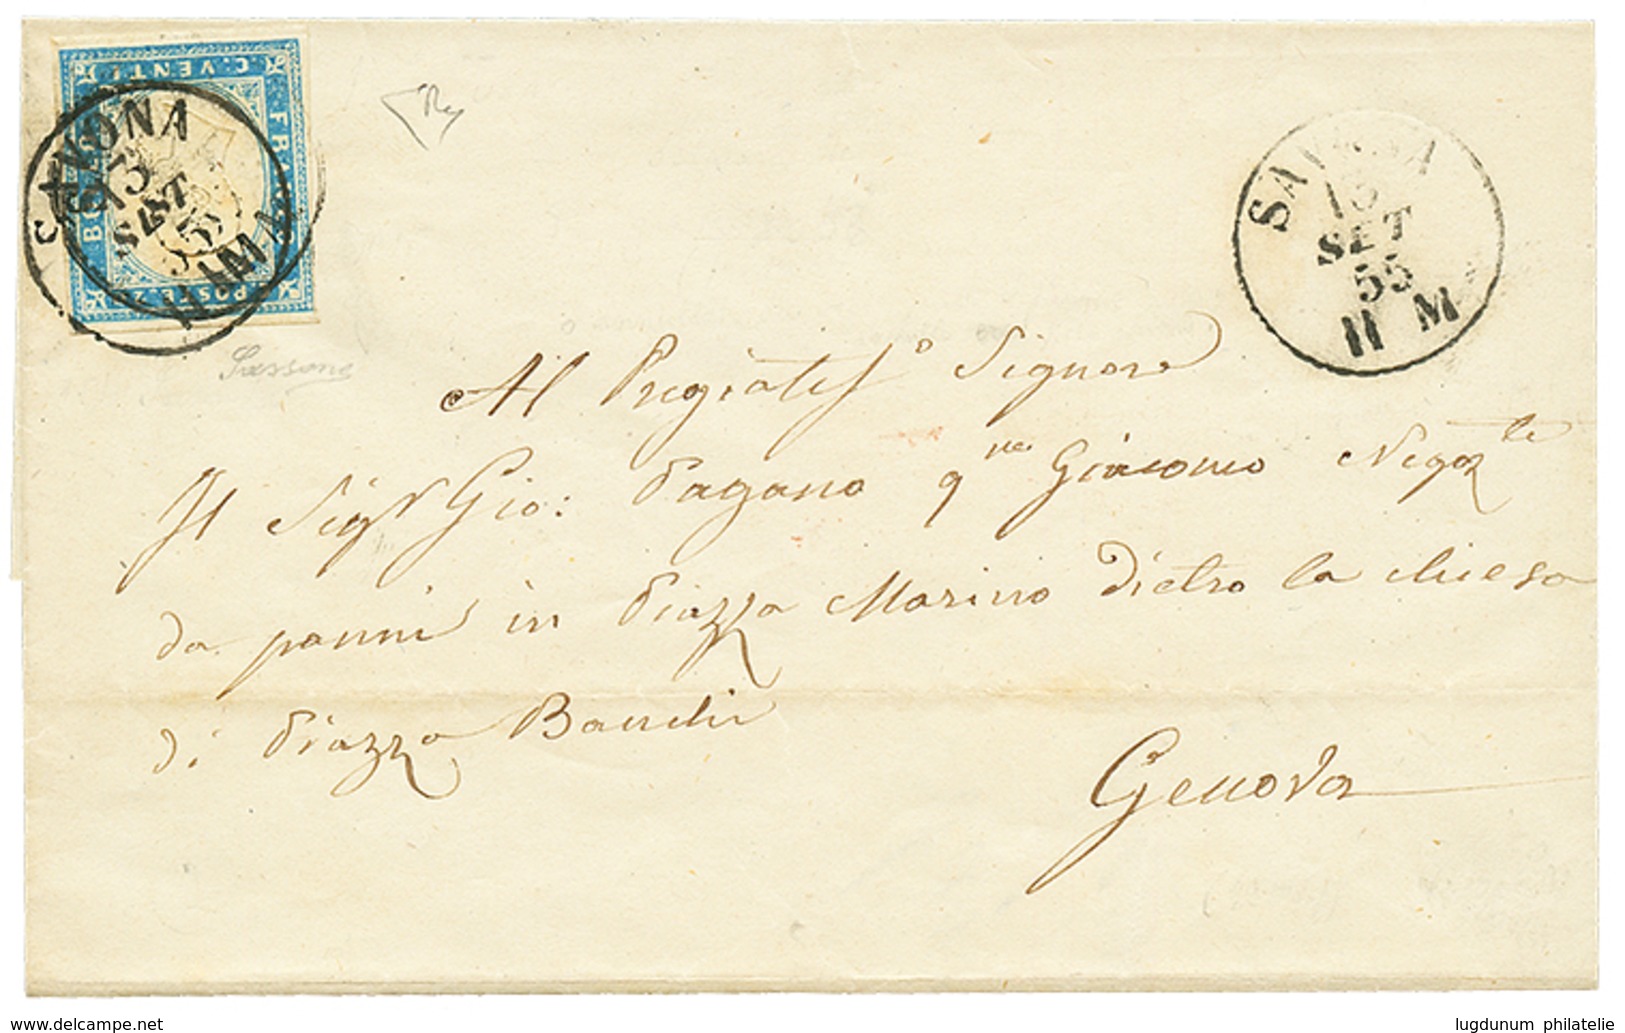 C. VENTI
FRANCO
BOLLO
POSTE. 2
SAVONA
13
SET
55
11 M
SAVONA
13
SET
55
11 M
Sassone
Al Pregiatis.o Signore
Il Sigr Gio: Pagano qm Giacomo Negozte
da panni in Piazza Marino dietro la chiesa
di Piazza Banchi
Genova
www.delcampe.net
lugdunum philatelie